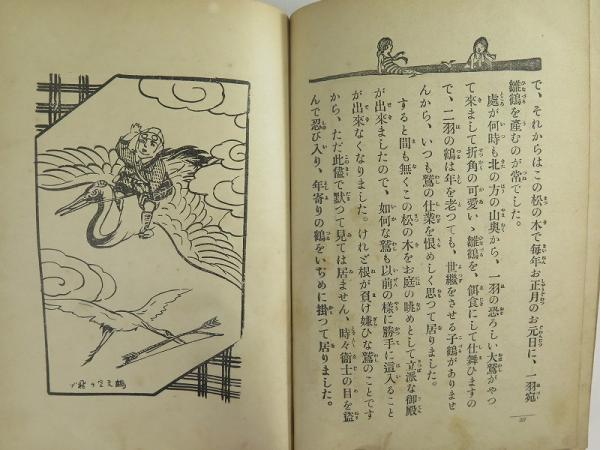 で、それからはこの松の木で毎年お正月のお元日に、一羽宛
雛鶴を産むのが常でした。
處が何時も北の方の山奥から、一羽の恐ろしい大鷲がやつ
て來まして折角の可愛いゝ雛鶴を、餌食にして仕舞ひますの
で、二羽の鶴は年を老つても、世繼をさせる子鶴がありませ
んから、いつも鷲の仕業を恨めしく思つて居りました。
すると間も無くこの松の木をお庭の眺めとして立派な御殿
が出來ましたので、如何な鷲も以前の樣に勝手に這入ること
が出來なくなりました。けれど根が負け嫌ひな鷲のことです
から、ただ此儘で默つて見ては居ません、時々衞士の目を盜
んで忍び入り、年寄りの鶴をいぢめに掛つて居りました。